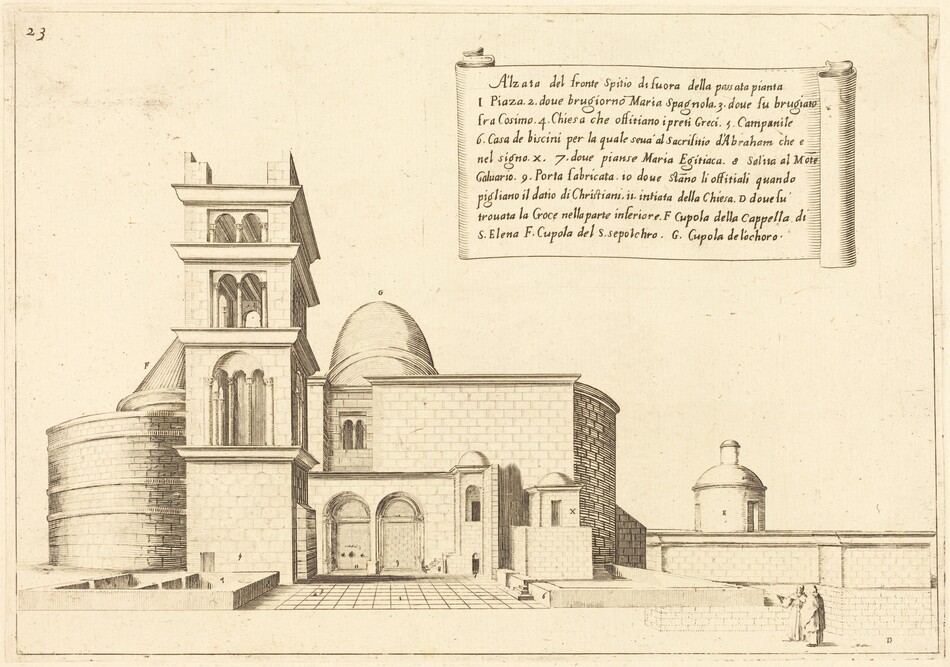 23
Alzata del fronte Spitio di fuora della passata pianta
I Piaza. 2. doue brugiorno Maria Spagnola. 3. doue fu brugiato
fra Cosimo. 4. Chiesa che offitiano i preti Greci. 5. Campanile
6. Casa de biscini per la quale seua al Sacrifitio d'Abraham che e
nel signo. X. 7. doue pianse Maria Egitiaca. 8 Salita al Mōte
Caluario. 9. Porta fabricata. 10 doue stāno li offitiali quando
pigliano il datio di Christiani. 11. intiata della Chiesa. D doue fu
trouata la Croce nella parte inferiore. F Cupola della Cappella di
S. Elena F. Cupola del S. sepolchro. G. Cupola de lo choro.
G
F
X
E
4
1
D